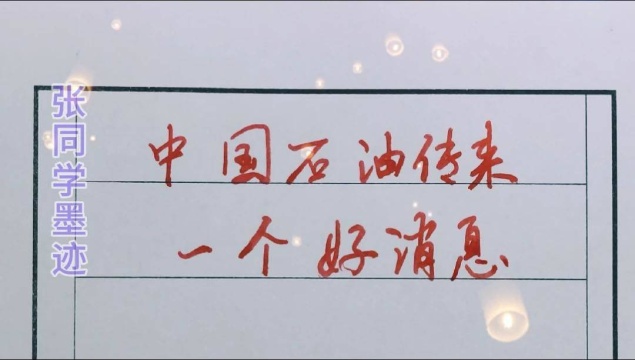 张同学墨迹
中国石油传来
一个好消息